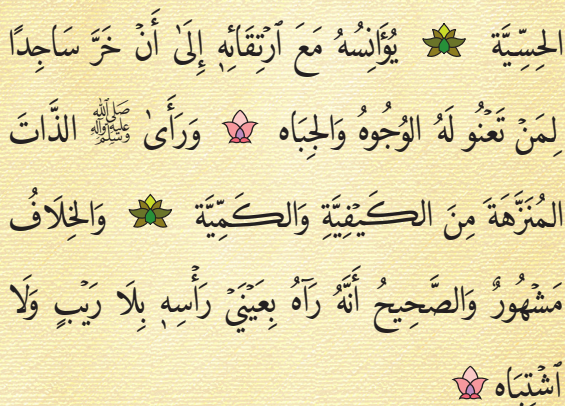 الحِسِّيَّة يُؤَانِسُهُ مَعَ ٱرْتِقَائِهِ إِلَىٰ أَنْ خَرَّ سَاجِدًا
لِمَنْ تَعْنُو لَهُ الوُجُوهُ وَالجِبَاه وَرَأَىٰ ﷺ الذَّاتَ
المُنَزَّهَةَ مِنَ الكَيْفِيَّةِ وَالكَمِّيَّة وَالخِلَافُ
مَشْهُورٌ وَالصَّحِيحُ أَنَّهُ رَآهُ بِعَيْنَيْ رَأْسِهِ بِلَا رَيْبٍ وَلَا
ٱشْتِبَاه